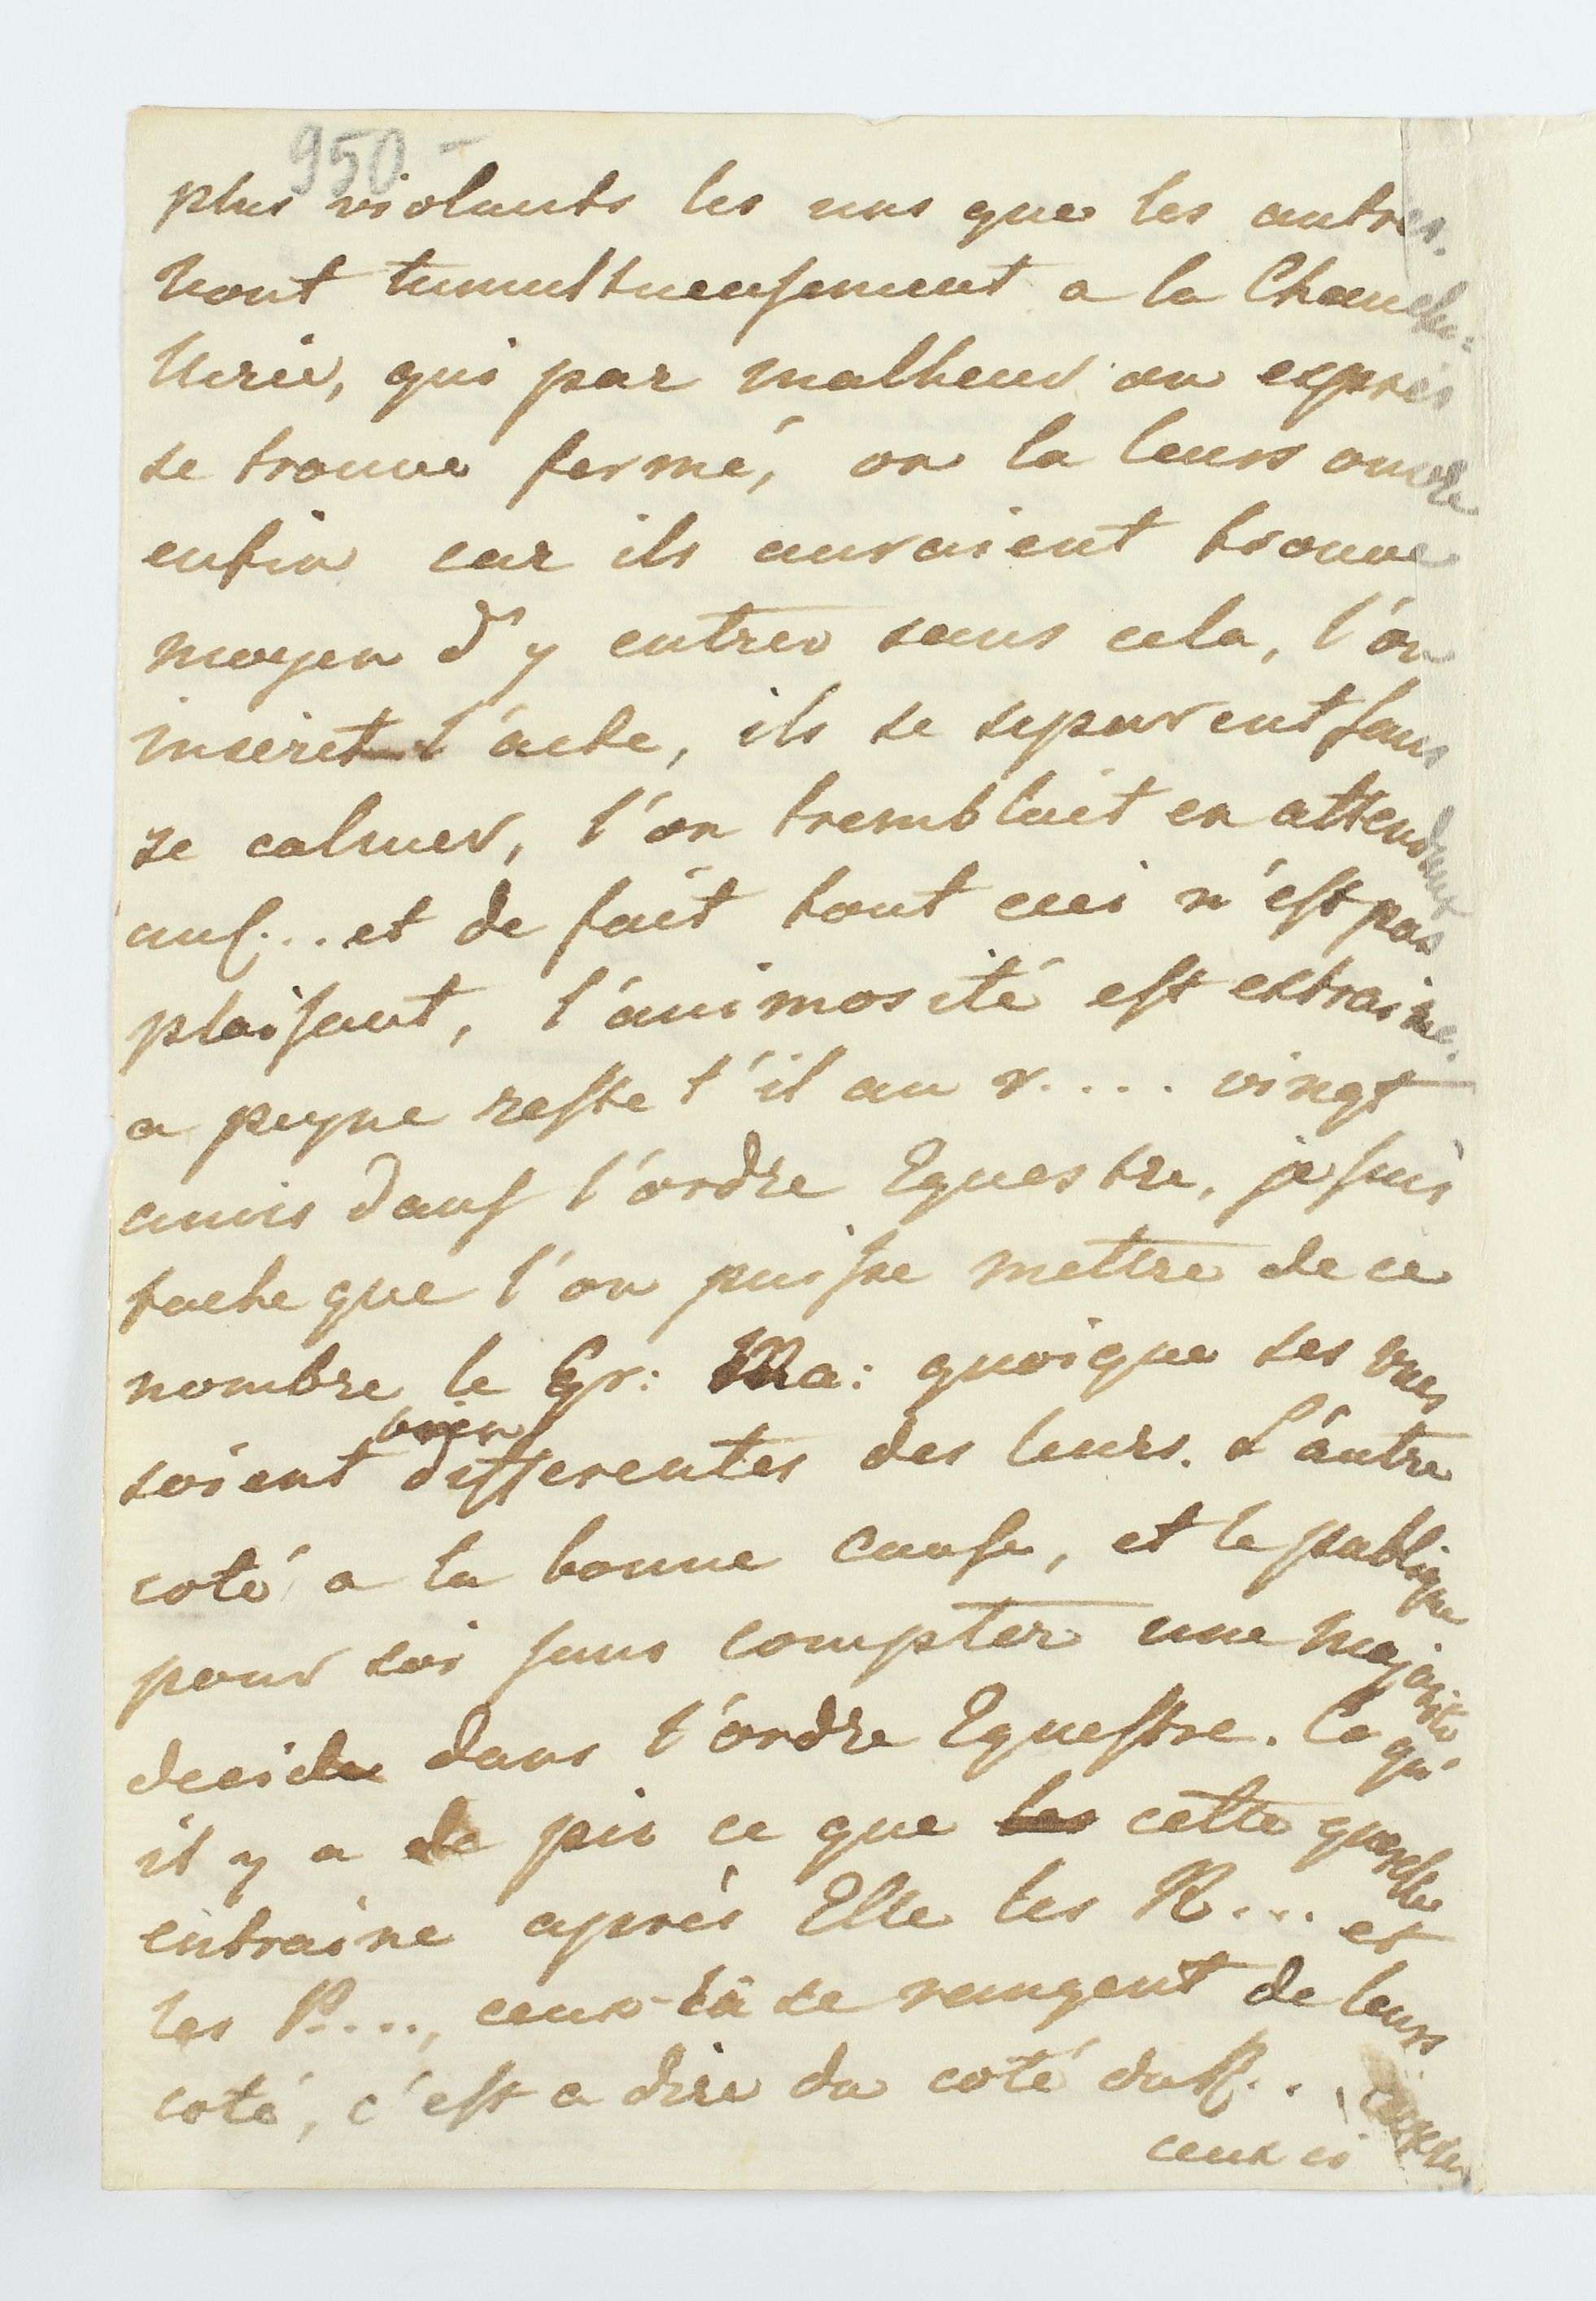 950-
plus violants les uns que les autres.
vont tumultueusement a la Chancel:
lerie, qui par malheur ou exprès
se trouve fermé, on la leurs ouvre
enfin car ils auraient trouve
moyen d'y entrer sans cela, l'on
inseret l'acte, ils se separent sans
se calmer, l'on tremblait en attendant
au C... et de fait tout ceci n'est pas
plaisant, l'animosité est extraime.
a peyne reste t'il au r.... vingt
amis dans l'ordre Equestre, je suis
fache que l'on puisse mettre de ce
nombre le Gr: Ma: quoique ses vues
soient bien differentes des leurs. L'autre
coté a la bonne cause, et le publique
pour soi sans compter une majorité
decidee dans l'ordre Equestre. Ce qu'
il y a de pis ce que les cette querelle
entraine après Elle les R... et
les P...., ceux-là se rangent de leurs
coté, c'est a dire du coté du R...
ceux ci